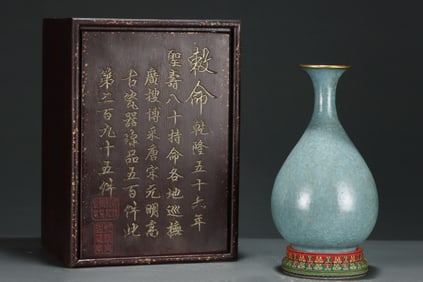 敕命 乾隆五十六年
聖壽八十特命各地巡撫
廣搜博采唐宋元明高
古瓷器珍品五百件此
第二百九十五件